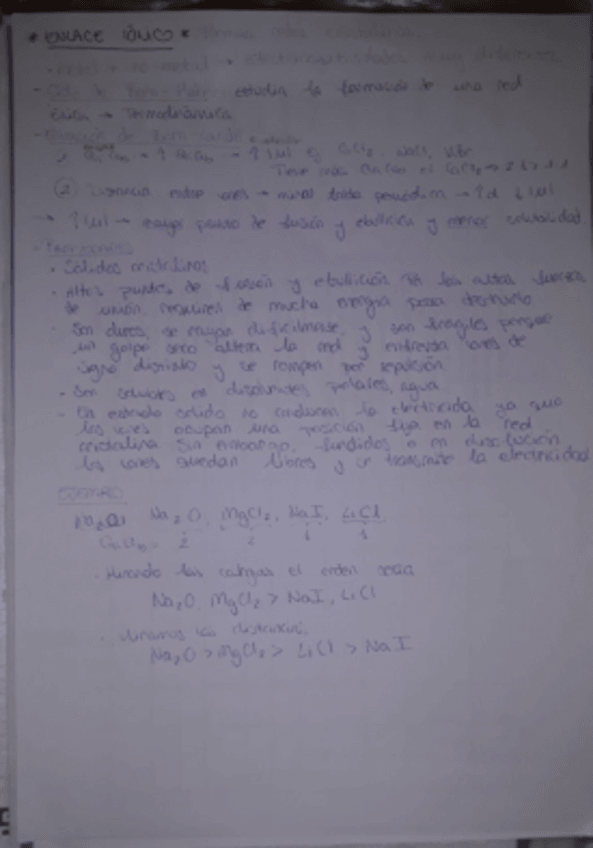 * ENLACE IÓNICO * forman redes cristalinas.
metal + no metal → electronegatividades muy diferentes
- Ciclo de Born-Haber: estudia la formación de una red
iónica → Termodinámica
- Ecuación de Born-Landé
→ ↑ |U| Ej CaCl₂, NaCl, KBr
Tiene más CaCl₂ → 2·1 > 1·1
② Distancia entre iones → miras tabla periódica → ↑d ↓|U|
→ ↑|U| → mayor punto de fusión y ebullición y menor solubilidad.
- Propiedades
• Sólidos cristalinos
• Altos puntos de fusión y ebullición las altas fuerzas
de unión, requieren de mucha energía para
• Son duros, se rayan difícilmente, y son frágiles porque
un golpe seco altera la red y enfrenta iones de
signo distinto y se rompen por repulsión.
- Son solubles en disolventes polares, agua
- En estado sólido no conducen la electricidad ya que
los iones ocupan una posición fija en la red
cristalina. Sin embargo, fundidos o en disolución
los iones quedan libres y se transmite la electricidad
EJEMPLO
Na₂O, MgCl₂, NaI, LiCl
2 2 1 1
- Mirando las cargas el orden sería
Na₂O, MgCl₂ > NaI, LiCl
- Miramos las distancias:
Na₂O > MgCl₂ > LiCl > NaI